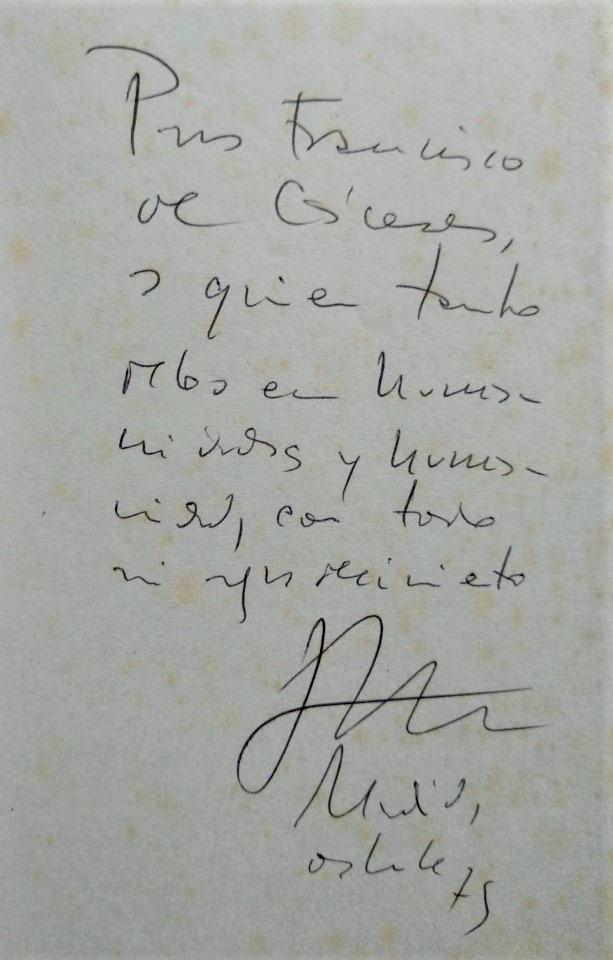 Para Francisco
de Cáceres,
a quien tanto
debo en huma-
nidades y huma-
nidad, con todo
mi agradecimiento
Madrid,
octubre 75